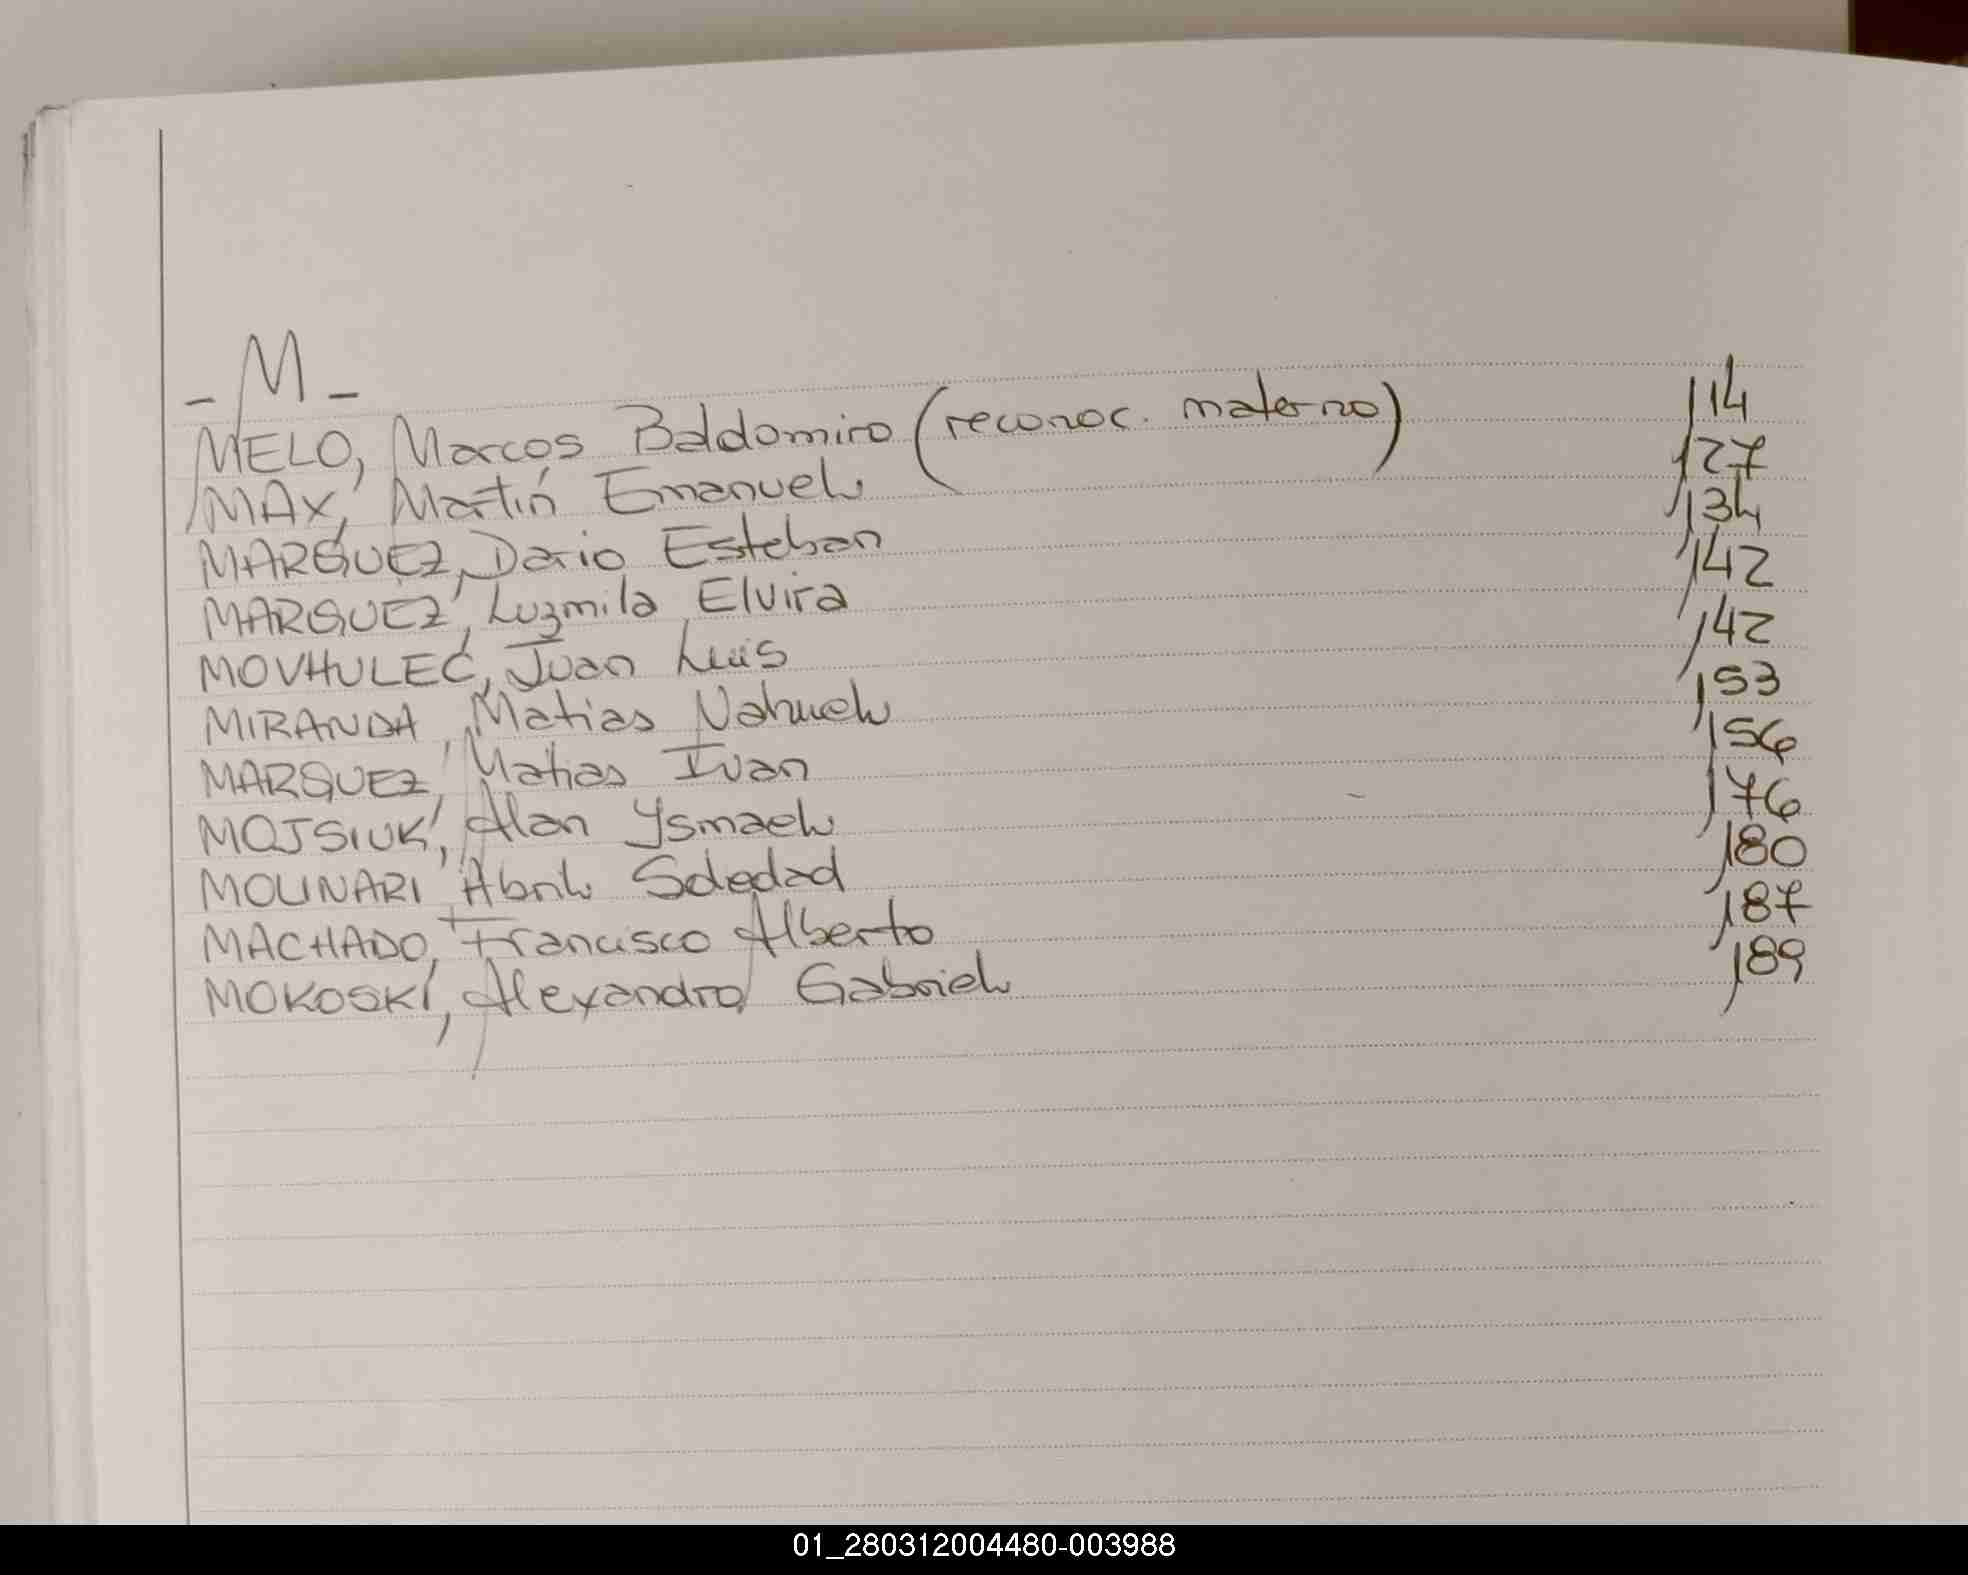 - M -
MELO, Marcos Baldomiro (reconoc. materno) 114
MAX, Martín Emanuel 127
MARQUEZ, Dario Esteban 134
MARQUEZ, Luzmila Elvira 142
MOVHULEC, Juan Luis 142
MIRANDA, Matias Nahuel 153
MARQUEZ, Matias Ivan 156
MOJSIUK, Alan Ysmael 176
MOLINARI, Abril Soledad 180
MACHADO, Francisco Alberto 187
MOKOSKI, Alexandro Gabriel 189
01_280312004480-003988